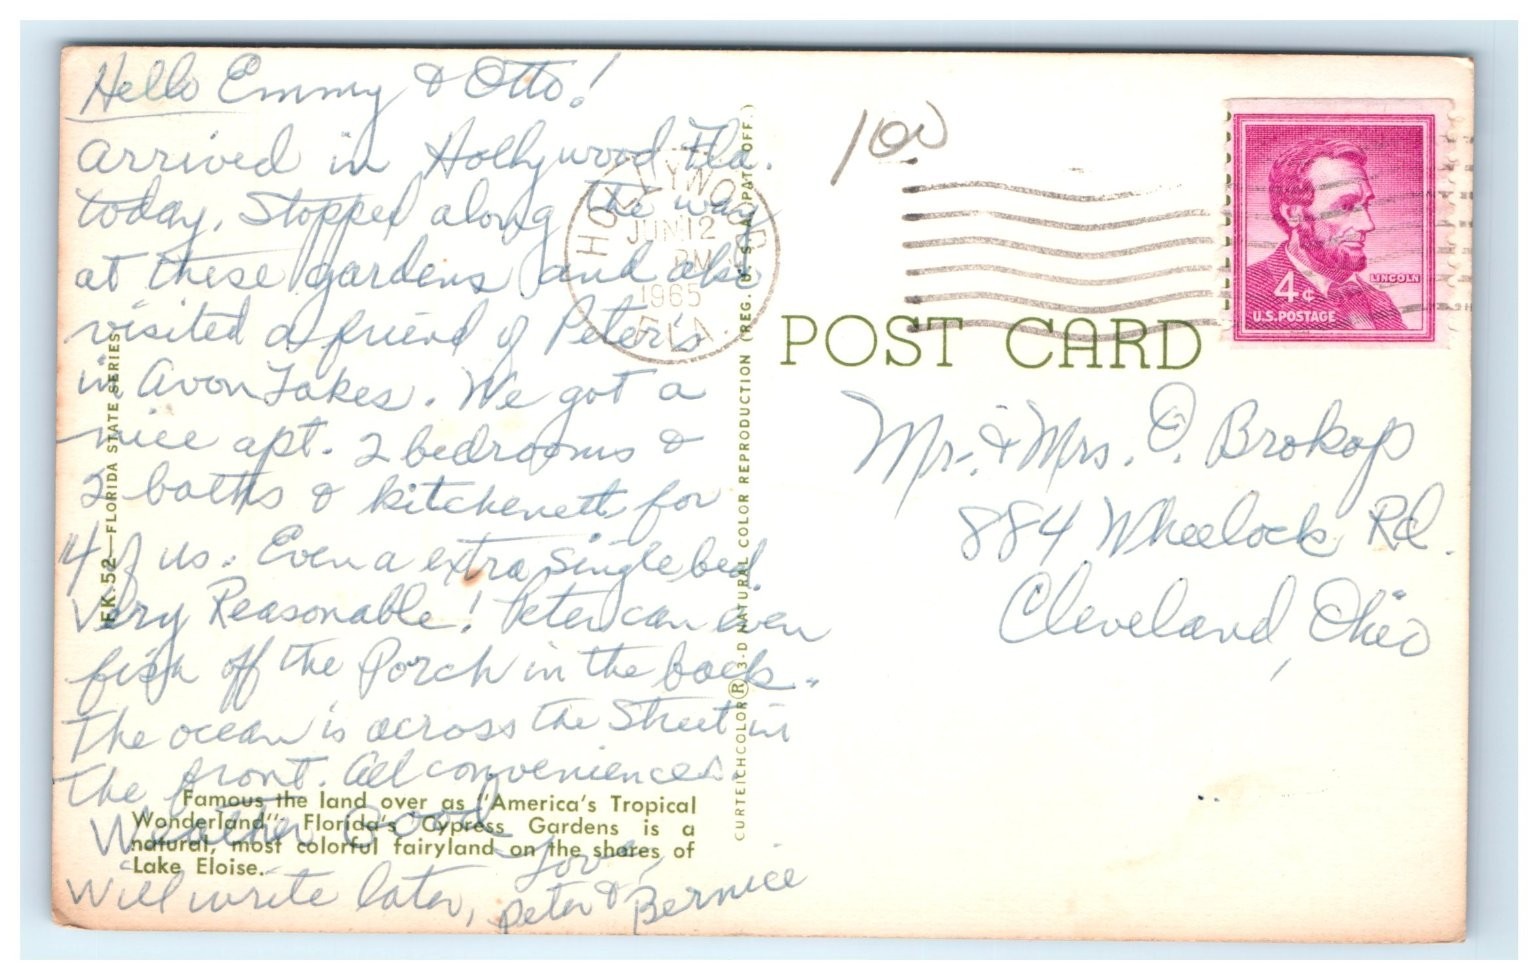 Hello Emmy & Otto!
arrived in Hollywood Fla.
today, Stopped along the way
at these gardens and also
visited a friend of Peter's
in Avon Lakes. We got a
nice apt. 2 bedrooms &
2 baths & kitchenett for
4 of us. Even a extra single bed.
Very Reasonable! Peter can even
fish off the Porch in the back.
The ocean is across the Street in
the front. All conveniences.
Weather Good
Love,
Will write later, Peter & Bernice
Famous the land over as "America's Tropical
Wonderland" Florida's Cypress Gardens is a
natural, most colorful fairyland on the shores of
Lake Eloise.
FK.52—FLORIDA STATE SERIES
CURTEICHCOLOR® 3-D NATURAL COLOR REPRODUCTION (REG. U. S. A. PAT. OFF.)
HOLLYWOOD
JUN 12
PM
1965
FLA.
100
4¢
LINCOLN
U.S. POSTAGE
POST CARD
Mr. & Mrs. O. Brokop
884 Wheelock Rd.
Cleveland, Ohio